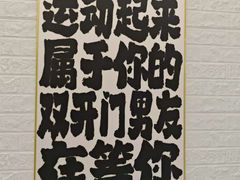 运动起来
属于你的
双开门男友
在等你